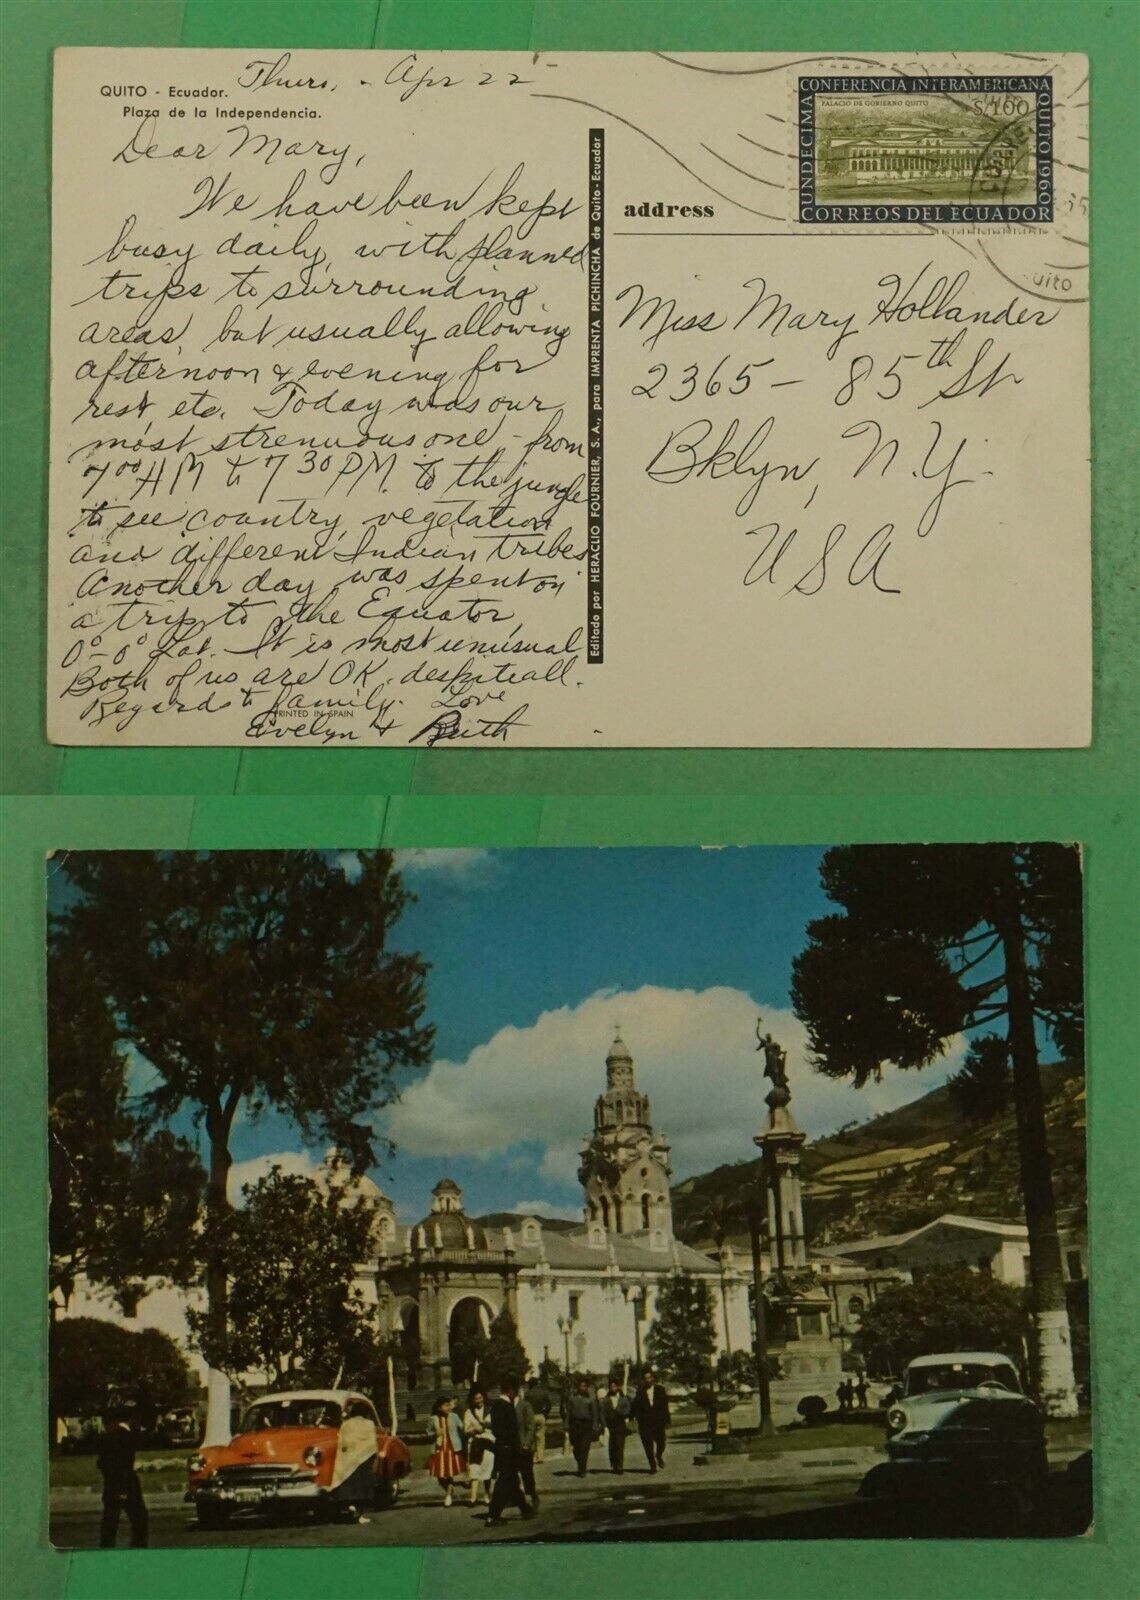 QUITO - Ecuador.
Plaza de la Independencia.
Thurs. - Apr 22
Dear Mary,
We have been kept
busy daily, with planned
trips to surrounding
areas, but usually allowing
afternoon & evening for
rest etc. Today was our
most strenuous one - from
7 00 AM to 7 30 PM. to the jungle
to see country, vegetation
and different Indian tribes
Another day was spent on
a trip to the Equator
0° - 0° Lat. It is most unusual
Both of us are OK. despite all.
Regards to family. Love
Evelyn & Ruth
PRINTED IN SPAIN
Editado por HERACLIO FOURNIER, S. A., para IMPRENTA PICHINCHA de Quito - Ecuador
CONFERENCIA INTERAMERICANA
UNDECIMA
QUITO 1960
PALACIO DE GOBIERNO QUITO
S/.1.00
CORREOS DEL ECUADOR
address
Miss Mary Hollander
2365 - 85th St
Bklyn, N.Y.
USA